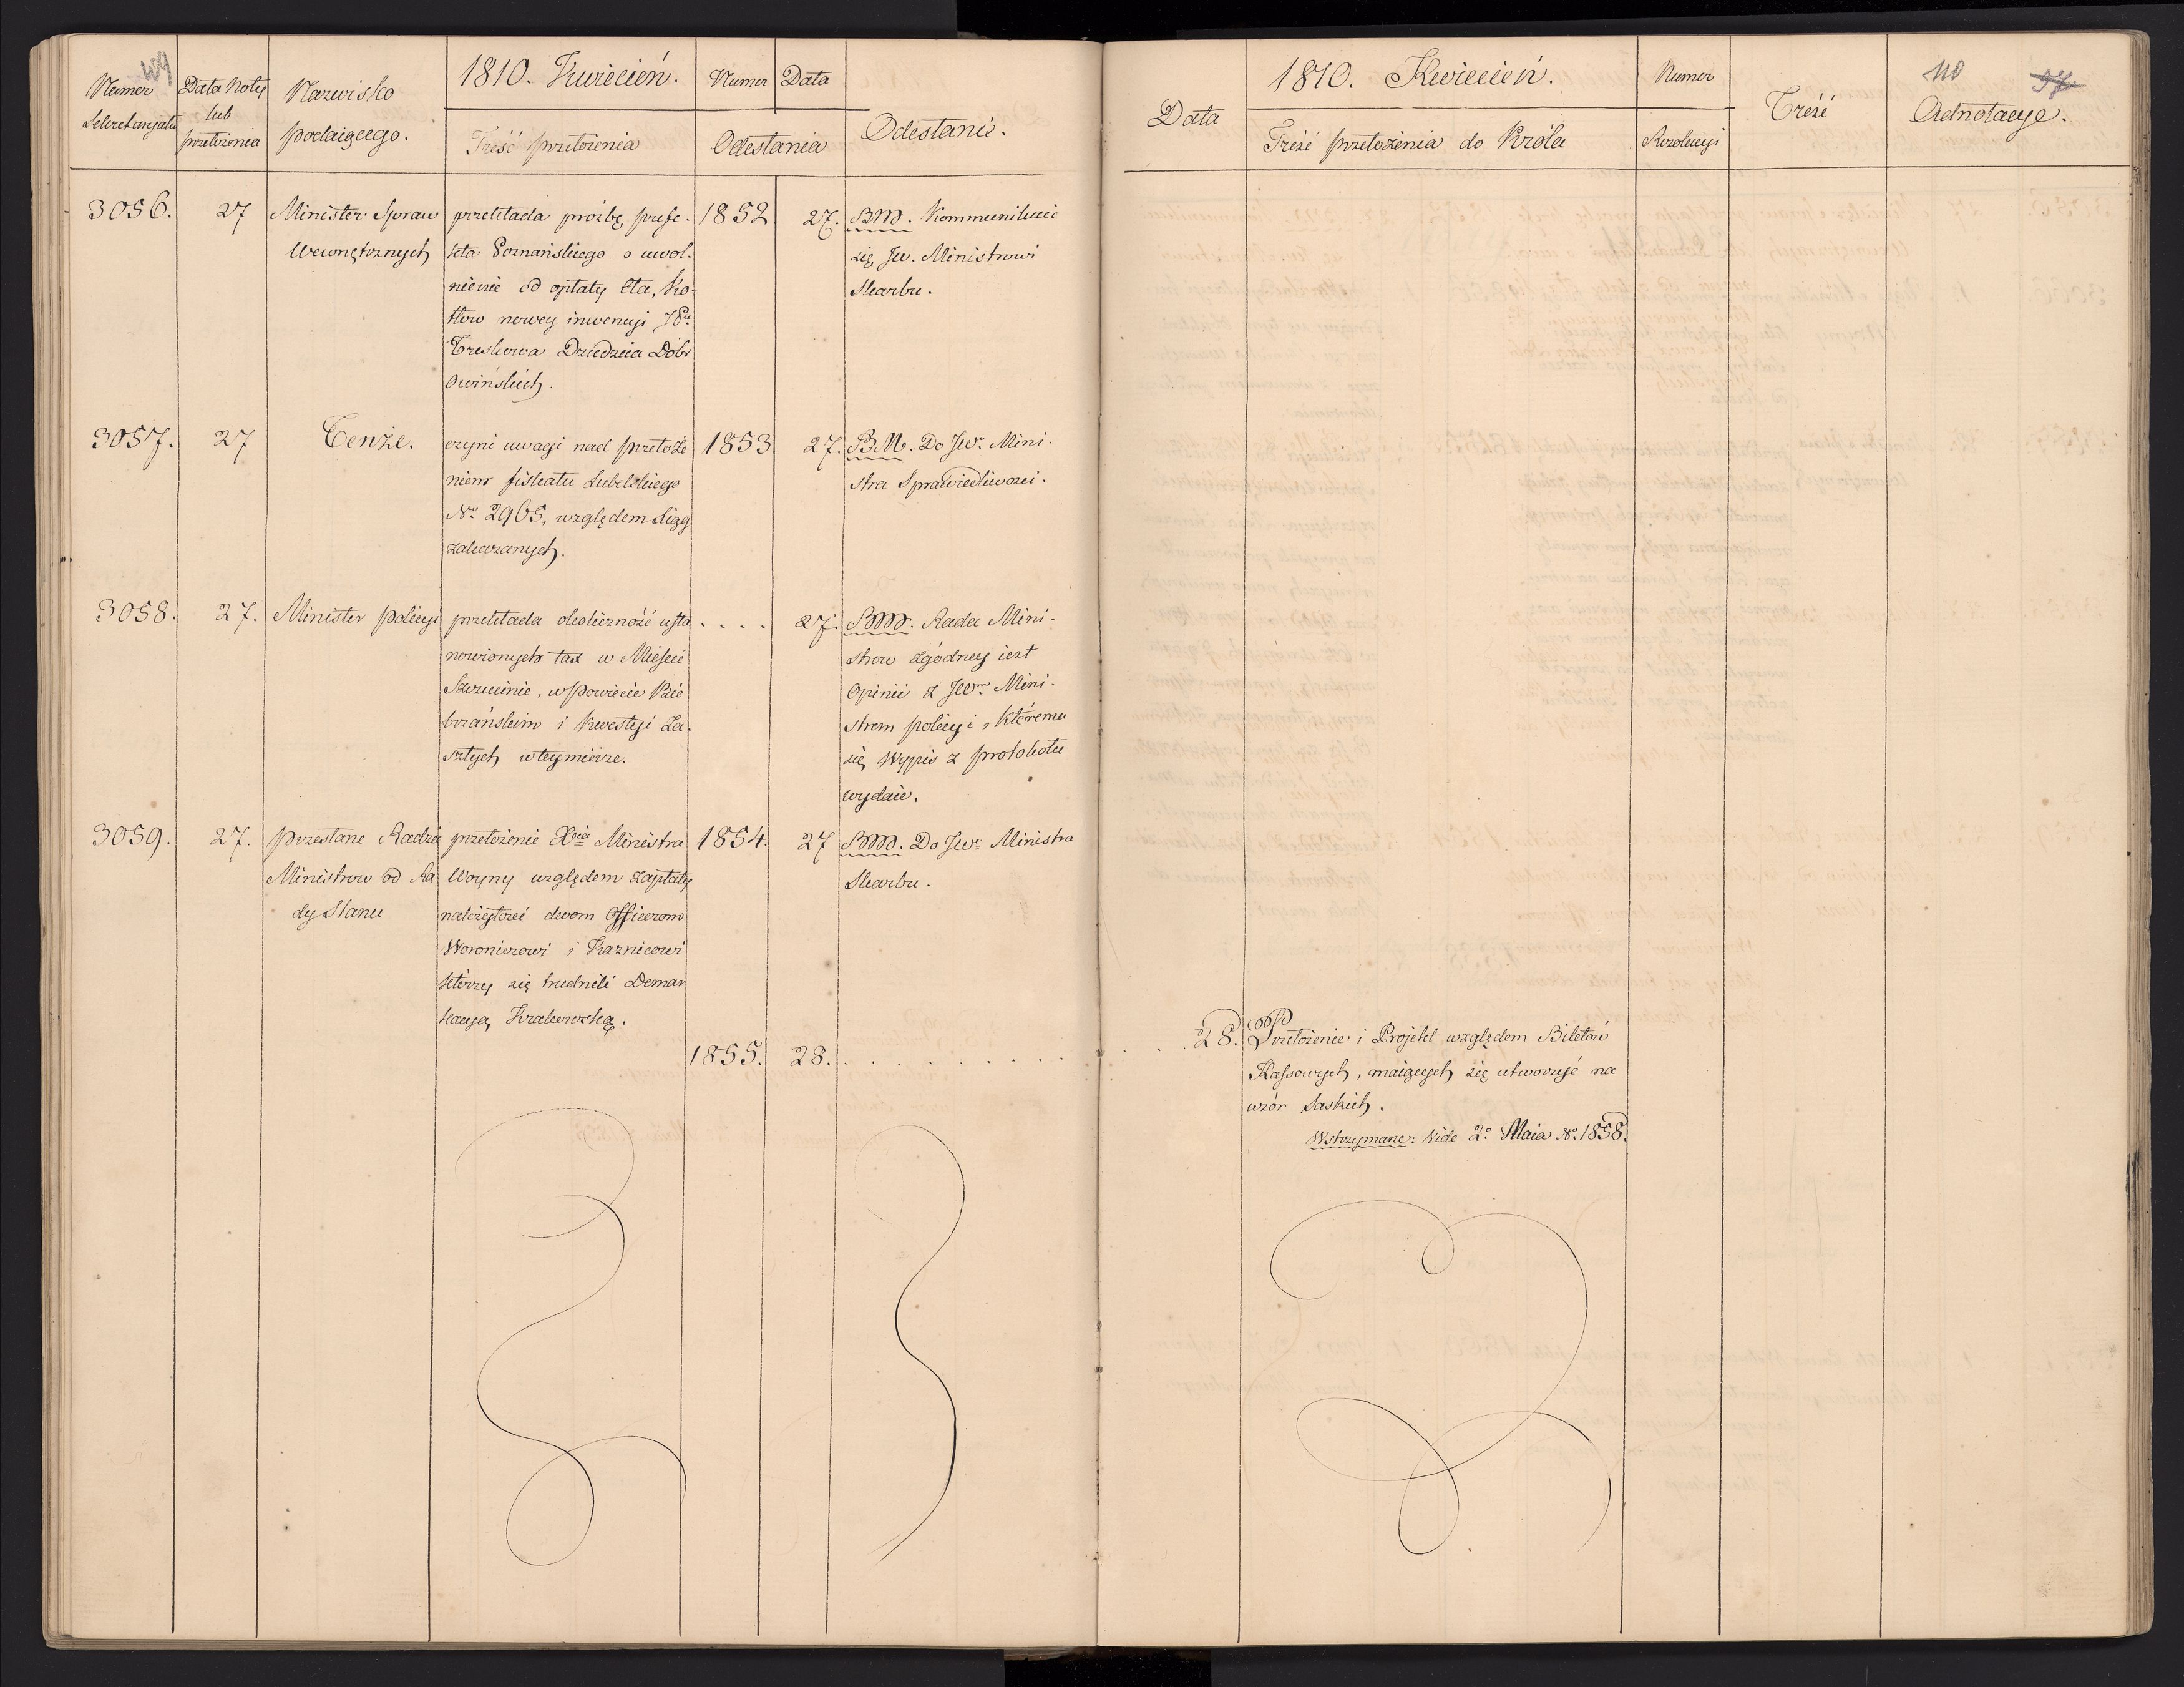 109
Numer
Sekretaryatu
Data Noty
lub
przełożenia
Nazwisko
podaiącego.
1810. Kwiecień.
Treść przełożenia
Numer
Data
Odesłania
Odesłanie.
3056.
27
Minister Spraw
Wewnętrznych
przekłada proźbę prefe-
kta Poznańskiego o uwol-
nienie od opłaty Cła, Ko-
tłow nowey inwencyi JPa
Treskowa Dziedzica Dóbr
Owińskich.
1852
27.
BM. Kommunikuie
się Jw. Ministrowi
Skarbu.
3057.
27
Tenże.
czyni uwagi nad przełoże
niem fiskatu Lubelskiego
No 2965, względem Xiąg
zakazanych.
1853
27.
BM. Do JWo Mini-
stra Sprawiedliwosci.
3058.
27.
Minister policyi
przekłada okoliczność usta
nowionych tax w Mieście
Szczucinie, w Powiecie Bie
brzańskim i kwestyi Za-
szłych w tey mierze.
. . . .
27.
BM. Rada Mini-
strow zgódney iest
Opinii z JWm Mini-
strem policyi, któremu
się Wypis z protokołu
wydaie.
3059.
27.
przesłane Radzie
Ministrow od Ra
dy Stanu
przełożenie Xcia Ministra
Woyny względem zapłaty
należytości dwom Officerom
Woroniczowi i Kaznicowi
którzy się trudnili Demar
kacyą Krakowską.
1854.
27
BM. Do JWo Ministra
Skarbu.
1855.
28.
. . . . . . . . . .
110
37
Data
1810. Kwiecień.
Treść przełożenia do Króla
Numer
Rezolucyi
Treść
Adnotacye.
. . . 28.
Przełożenie i Projekt względem Biletów
Kassowych, maiących się utworzyć na
wzór Saskich.
Wstrzymane: Vide 2o Maia No 1858.